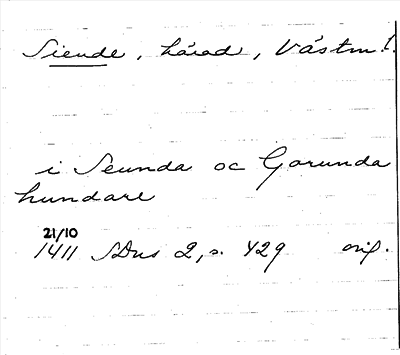 Siende, härad, Västm l.
i Seunda oc Gorunda
hundare
21/10
1411 SDns 2, s. 429 orig.